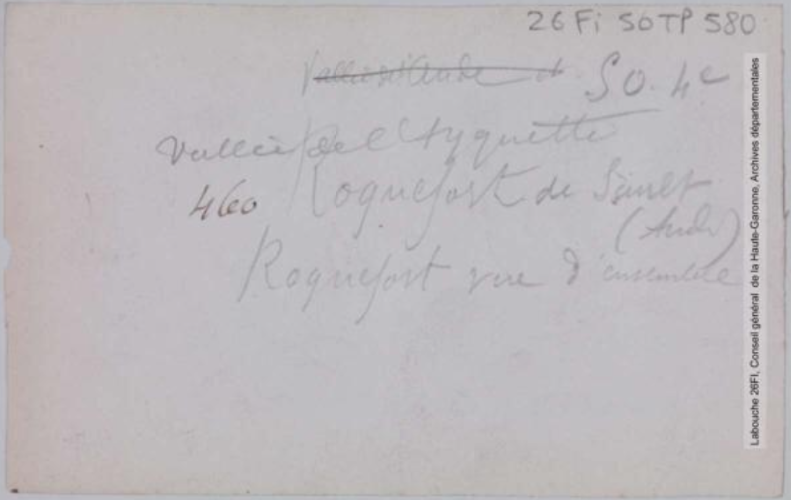 26 Fi SO TP 580
Vallée de l'Aude et SO. 4e
Vallée de l'Ayguette
460 Roquefort de Sault
(Aude)
Roquefort vue d'ensemble
Labouche 26FI, Conseil général de la Haute-Garonne, Archives départementales